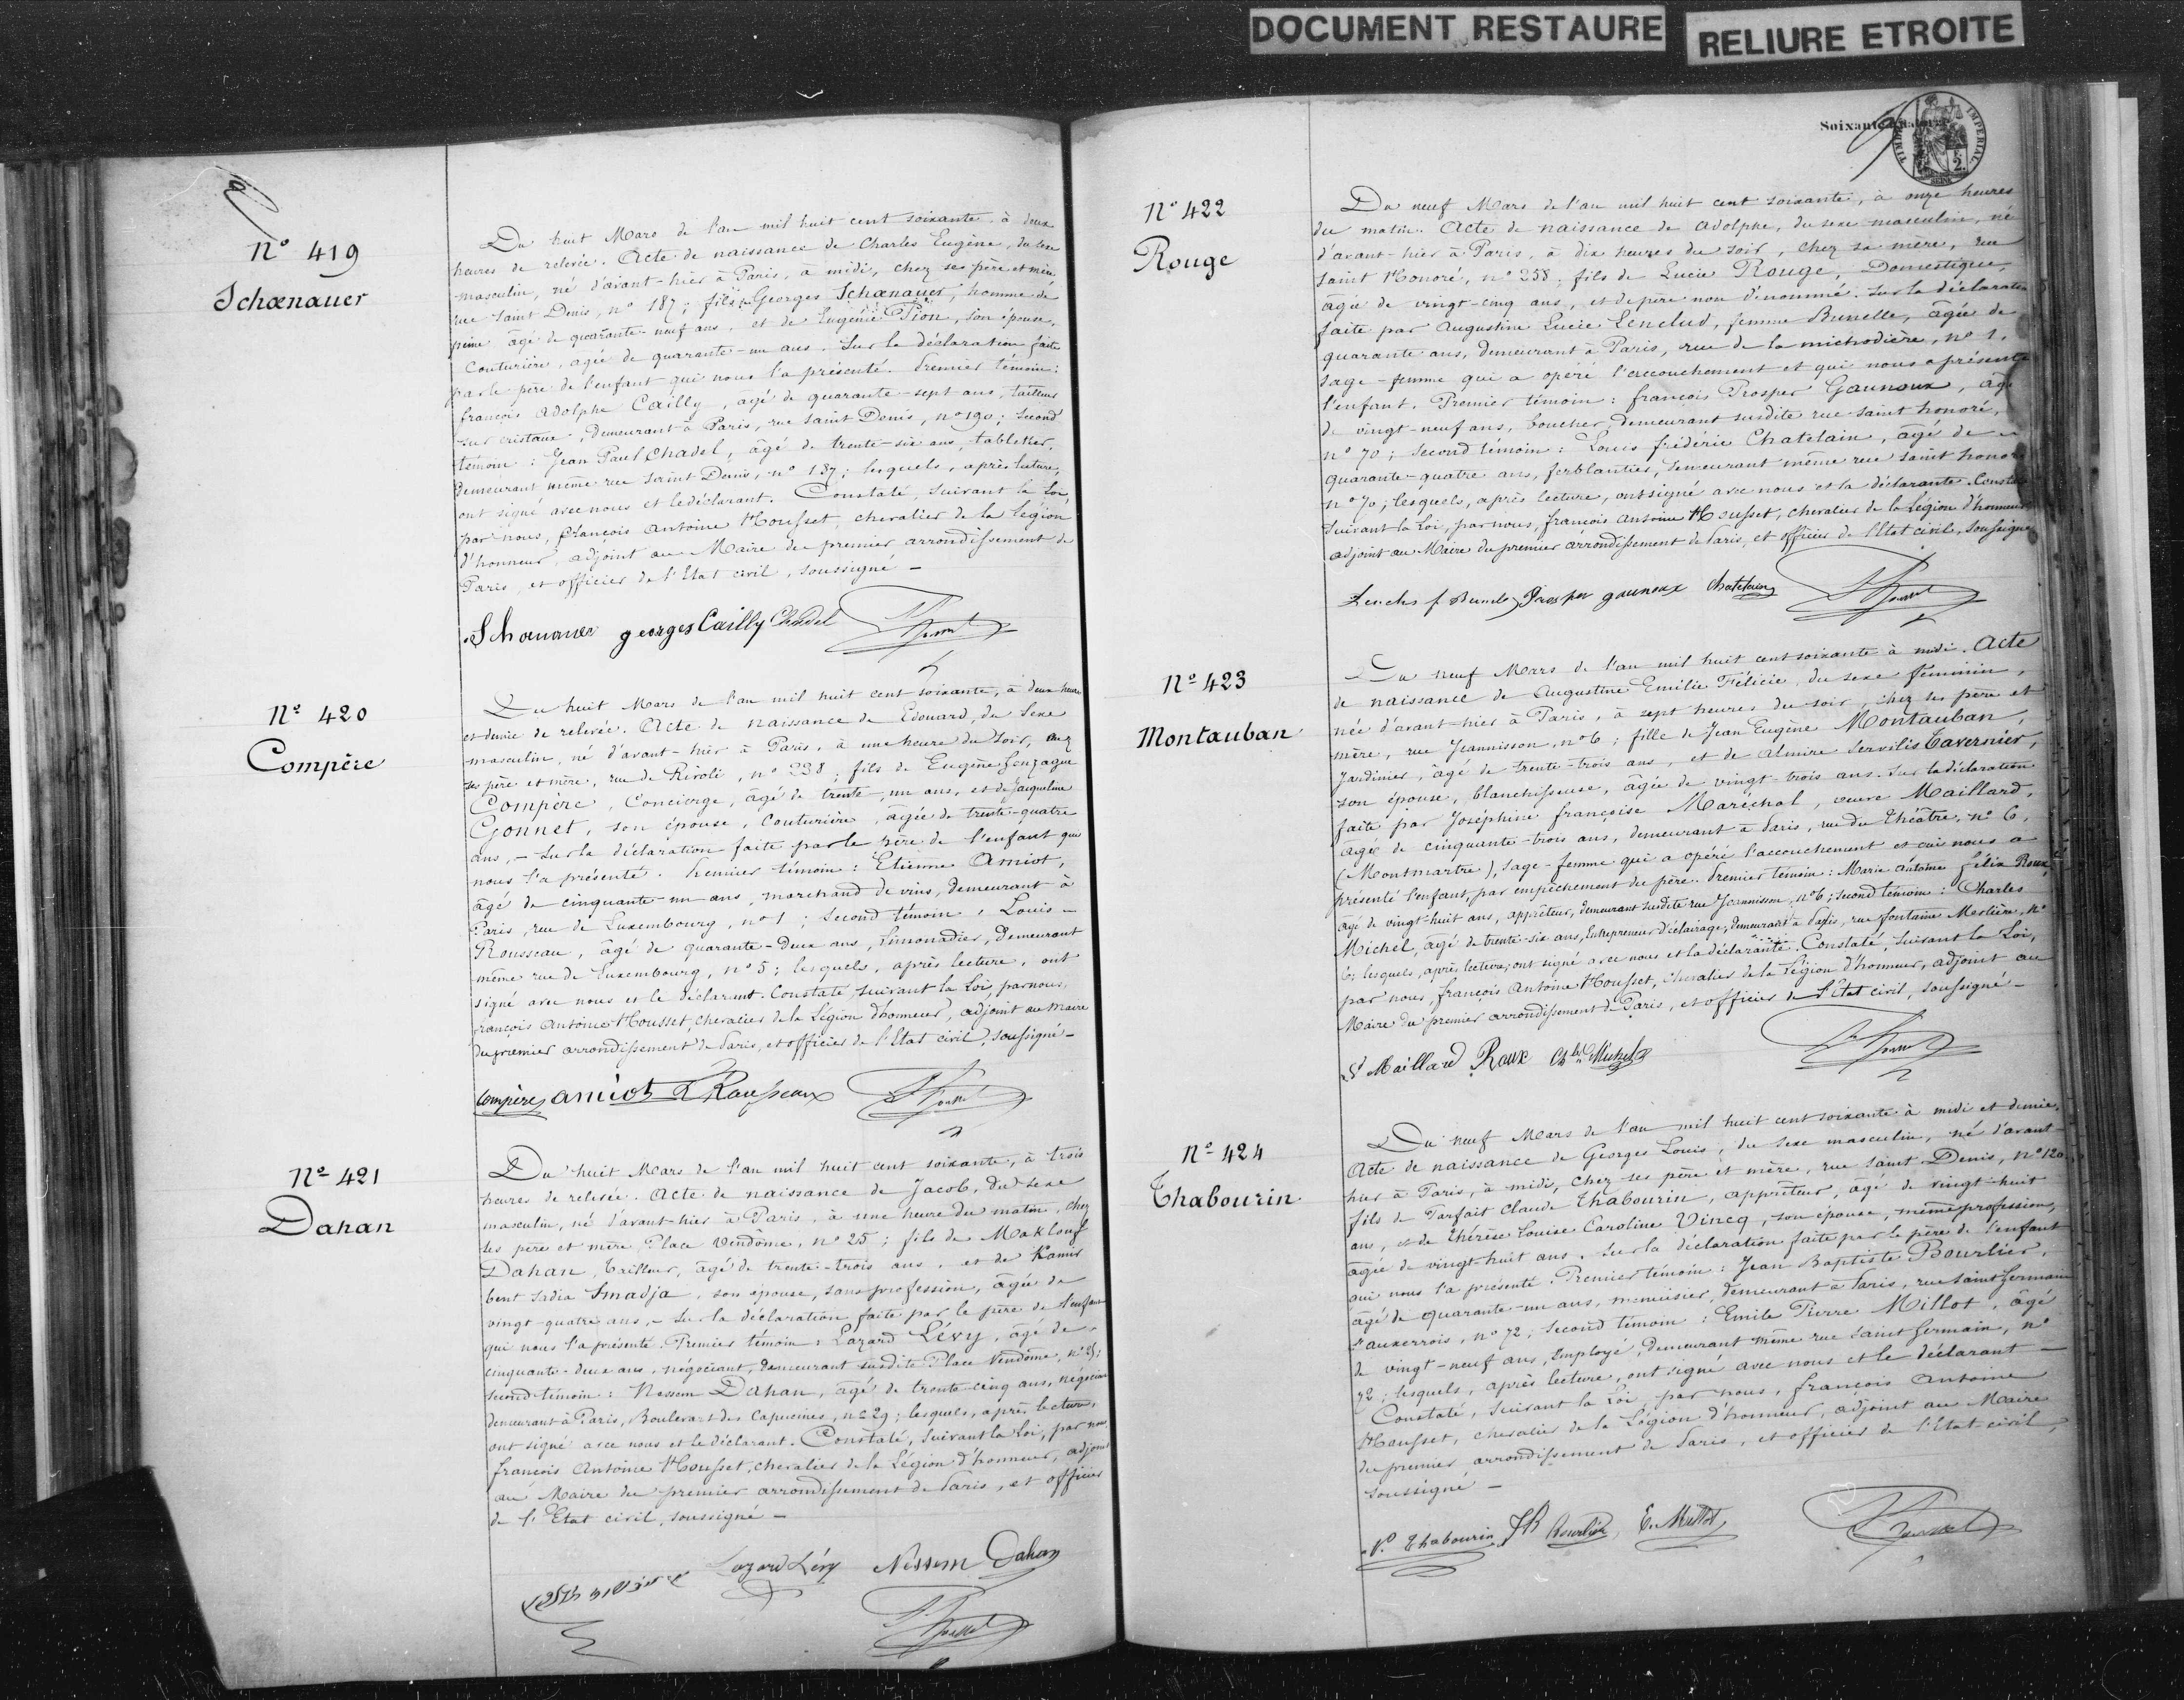 DOCUMENT RESTAURE
RELIURE ETROITE
Nº 419
Schœnauer
Du huit Mars de l'an mil huit cent soixante à deux
heures de relevée. Acte de naissance de Charles Eugène, du sexe
masculin, né d'avant-hier à Paris, à midi, chez ses père et mère,
rue Saint Denis, nº 187; fils de Georges Schœnauer, homme de
peine âgé de quarante-neuf ans, et de Eugénie Pion, son épouse,
Couturière, agée de quarante-un ans. Sur la déclaration faite
par le père de l'enfant qui nous l'a présenté. Premier témoin:
françois Adolphe Cailly, agé de quarante-sept ans, tailleur
sur cristaux, demeurant à Paris, rue Saint Denis, nº 190; Second
témoin: Jean Paul Chadel, âgé de trente-six ans, tabletier,
demeurant même rue Saint Denis, nº 187; lesquels, après lecture,
ont signé avec nous et le déclarant. Constaté, suivant la Loi,
par nous, françois Antoine Housset, chevalier de la Légion
d'honneur, adjoint au Maire du premier arrondissement de
Paris, et officier de l'Etat civil, soussigné -
Schœnauer georges Cailly Chadel
Nº 420
Compère
Du huit Mars de l'an mil huit cent soixante, à deux heures
et demie de relevée. Acte de naissance de Edouard, du sexe
masculin, né d'avant-hier à Paris, à une heure du soir, chez
ses père et mère, rue de Rivoli, nº 238; fils de Eugène Gonzague
Compère, Concierge, âgé de trente-un ans, et de Jacqueline
Gonnet, son épouse, Couturière, âgée de trente-quatre
ans, - Sur la déclaration faite par le père de l'enfant qui
nous l'a présenté. Premier témoin: Etienne Amiot,
âgé de cinquante-un ans, marchand de vins, demeurant à
Paris, rue de Luxembourg, nº 1; Second témoin, Louis -
Rousseau, âgé de quarante-deux ans, limonadier, demeurant
même rue de Luxembourg, nº 5; lesquels, après lecture, ont
signé avec nous et le déclarant. Constaté, suivant la Loi, par nous,
françois Antoine Housset, chevalier de la Légion d'honneur, adjoint au Maire
du premier arrondissement de Paris, et officier de l'Etat civil, soussigné -
Compère amiot Rousseau
Nº 421
Dahan
Du huit Mars de l'an mil huit cent soixante, à trois
heures de relevée. Acte de naissance de Jacob, du sexe
masculin, né d'avant-hier à Paris, à une heure du matin, chez
ses père et mère, Place Vendôme, nº 25; fils de Maklouf
Dahan, tailleur, âgé de trente-trois ans, et de Kamir
bent Sadia Smadja, son épouse, sans profession, âgée de
vingt-quatre ans, - Sur la déclaration faite par le père de l'enfant
qui nous l'a présenté. Premier témoin: Lazard Lévy, âgé de
cinquante-deux ans, négociant, demeurant susdite Place Vendôme, nº 25;
second témoin: Nessem Dahan, âgé de trente-cinq ans, négociant
demeurant à Paris, Boulevart des Capucines, nº 29; lesquels, après lecture,
ont signé avec nous et le déclarant. Constaté, suivant la Loi, par nous
françois Antoine Housset, chevalier de la Légion d'honneur, adjoint
au Maire du premier arrondissement de Paris, et officier
de l'Etat civil, soussigné -
Lazard Lévy Nessem Dahan
Soixante
TIMBRE IMPERIAL
2.
SEINE
Nº 422
Rouge
Du neuf Mars de l'an mil huit cent soixante, à onze heures
du matin. Acte de naissance de Adolphe, du sexe masculin, né
d'avant-hier à Paris, à dix heures du soir, chez sa mère, rue
Saint Honoré, nº 258; fils de Lucie Rouge, Domestique,
âgée de vingt-cinq ans, et de père non dénommé. Sur la déclaration
faite par Augustine Lucie Lenclud, femme Bunelle, âgée de
quarante ans, demeurant à Paris, rue de la michodière, nº 1,
Sage-femme qui a opéré l'accouchement et qui nous a présenté
l'enfant. Premier témoin: françois Prosper Gaunoux, âgé
de vingt-neuf ans, boucher, demeurant susdite rue Saint honoré,
nº 70; Second témoin: Louis frédéric Chatelain, âgé de
quarante-quatre ans, ferblantier, demeurant même rue Saint honoré
nº 70; lesquels, après lecture, ont signé avec nous et la déclarante. Constaté
suivant la Loi, par nous, françois Antoine Housset, chevalier de la Légion d'honneur
adjoint au Maire du premier arrondissement de Paris, et officier de l'Etat civil, soussigné
Prosper gaunoux Chatelain
Nº 423
Montauban
Du neuf Mars de l'an mil huit cent soixante à midi. Acte
de naissance de Augustine Emilie Félicie, du sexe féminin,
née d'avant-hier à Paris, à sept heures du soir, chez ses père et
mère, rue Jeannisson, nº 6; fille de Jean Eugène Montauban,
Jardinier, âgé de trente-trois ans, et de Almire Servilis Tavernier,
son épouse, blanchisseuse, âgée de vingt-trois ans. Sur la déclaration
faite par Joséphine françoise Maréchal, veuve Maillard,
âgée de cinquante-trois ans, demeurant à Paris, rue du Théâtre, nº 6,
(Montmartre), sage-femme qui a opéré l'accouchement et qui nous a
présenté l'enfant, par empêchement du père. Premier témoin: Marie Antoine félix Roux,
âgé de vingt-huit ans, apprêteur, demeurant susdite rue Jeannisson, nº 6; second témoin: Charles
Michel, âgé de trente-six ans, Entrepreneur d'éclairage, demeurant à Paris, rue fontaine Molière, nº
6; lesquels, après lecture, ont signé avec nous et la déclarante. Constaté, suivant la Loi,
par nous, françois Antoine Housset, chevalier de la Légion d'honneur, adjoint au
Maire du premier arrondissement de Paris, et officier de l'Etat civil, soussigné -
Maillard Roux Michel
Nº 424
Thabourin
Du neuf Mars de l'an mil huit cent soixante à midi et demie.
Acte de naissance de Georges Louis, du sexe masculin, né d'avant
hier à Paris, à midi, chez ses père et mère, rue Saint Denis, nº 120
fils de Parfait Claude Thabourin, apprêteur, âgé de vingt-huit
ans, et de Thérèse Louise Caroline Vincq, son épouse, même profession,
âgée de vingt-huit ans. Sur la déclaration faite par le père de l'enfant
qui nous l'a présenté. Premier témoin: Jean Baptiste Bourlier,
âgé de quarante-un ans, menuisier, demeurant à Paris, rue Saint Germain
l'auxerrois, nº 72; Second témoin: Emile Pierre Millot, âgé
de vingt-neuf ans, Employé, demeurant même rue Saint Germain, nº
72; lesquels, après lecture, ont signé avec nous et le déclarant -
Constaté, suivant la Loi, par nous, françois Antoine
Housset, chevalier de la Légion d'honneur, adjoint au Maire
du premier arrondissement de Paris, et officier de l'Etat civil,
soussigné -
P. Thabourin Bourlier E. Millot